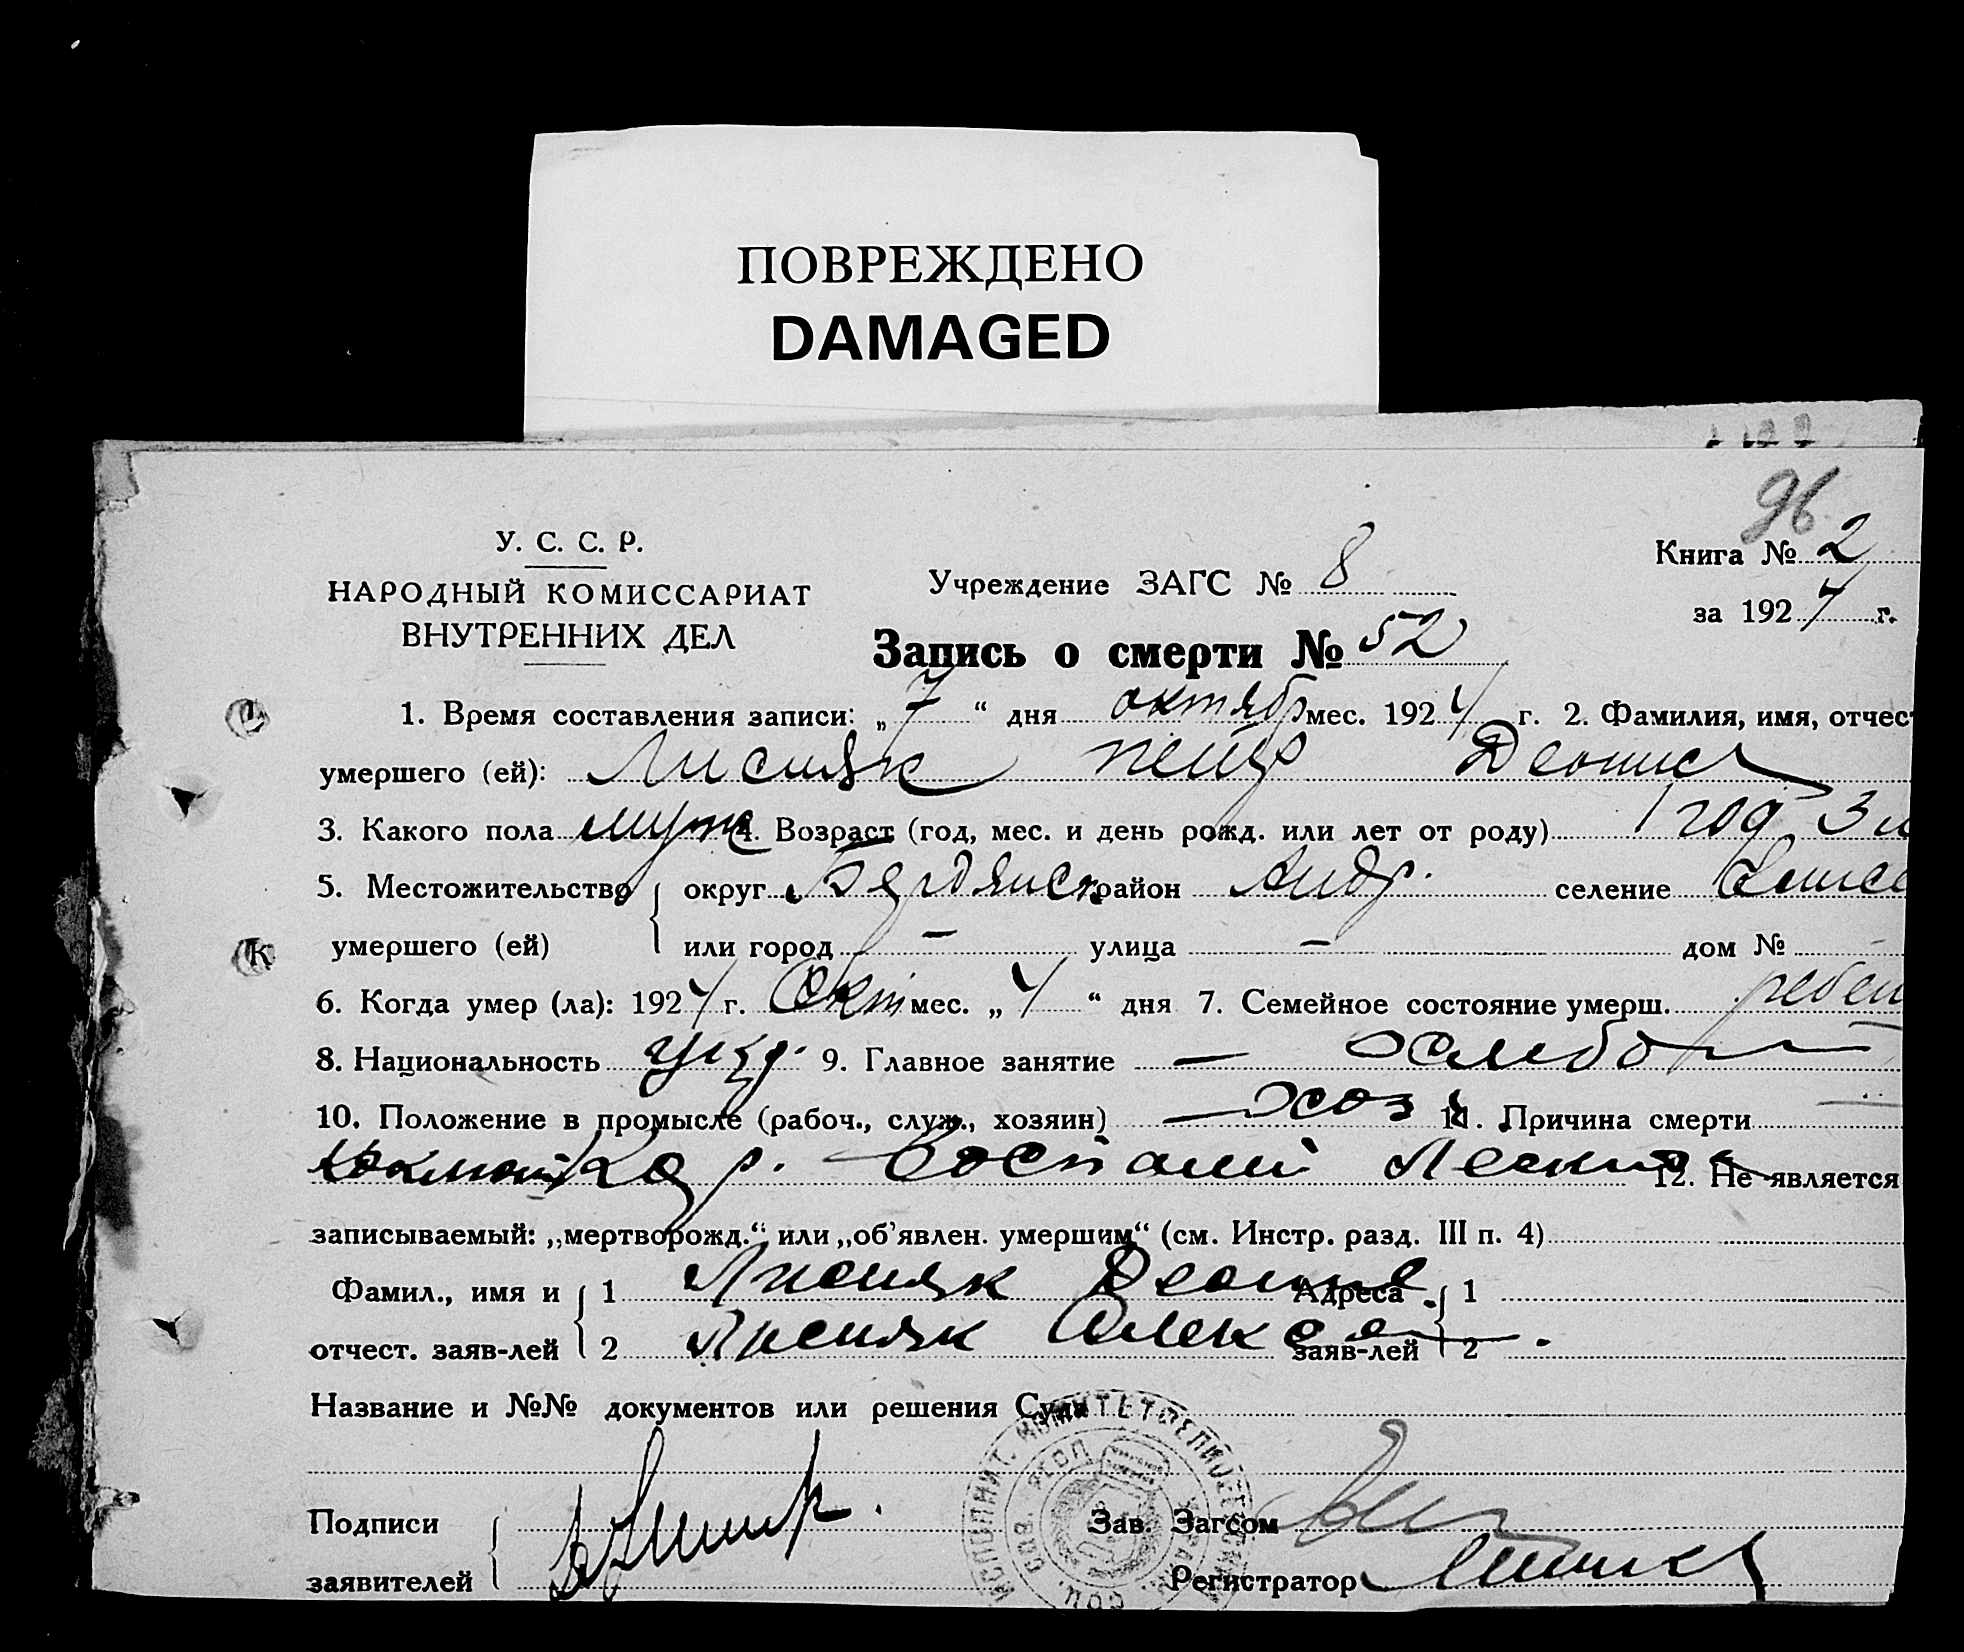 ПОВРЕЖДЕНО
DAMAGED
96
У. С. С. Р.
НАРОДНЫЙ КОМИССАРИАТ
ВНУТРЕННИХ ДЕЛ
Учреждение ЗАГС № 8
Книга № 2
за 1924 г.
Запись о смерти № 52
1. Время составления записи: „7“ дня октябр мес. 1924 г. 2. Фамилия, имя, отчест
умершего (ей): Лисняк Петр Деонис
3. Какого пола муж 4. Возраст (год, мес. и день рожд. или лет от роду) 1 год, 3 м
5. Местожительство округ Бердянск район Андр. селение
умершего (ей) или город — улица — дом №
6. Когда умер (ла): 1924 г. Окт мес. „4“ дня 7. Семейное состояние умерш. ребен
8. Национальность укр. 9. Главное занятие —
10. Положение в промысле (рабоч., служ., хозяин) — 11. Причина смерти
12. Не является
записываемый: „мертворожд.“ или „об’явлен. умершим“ (см. Инстр. разд. III п. 4)
Фамил., имя и 1 Лисняк Деонис Адреса 1
отчест. заяв-лей 2 Лисняк Алекс заяв-лей 2
Название и №№ документов или решения Суда
Подписи Зав. Загсом
заявителей Регистратор